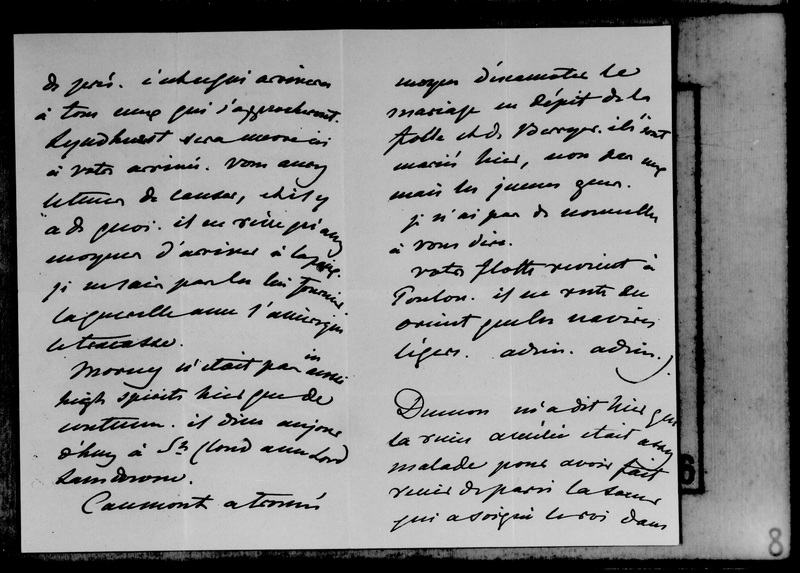 de près. c'est ce qui arrivera
à tous ceux qui s'approcheront.
Lyndhurst sera mercredi
à votre arrivée. vous aurez
le tems de causer, et il y
a de quoi. il ne rêve qu'aux
moyens d'arriver à la paix.
je ne sais pas les lui fournir.
la querelle avec l'amérique
le tracasse.
Morny n'était pas in aussi
high spirits hier que de
coutume. il dine aujour
d'huy à St Cloud avec Lord
Lansdowne.
Caumont a trouvé
moyen d'escamoter le
mariage en dépit de la
folle et de Berryer. ils sont
mariés hier, non par eux
mais les jeunes gens.
je n'ai pas de nouvelles
à vous dire.
votre flotte revient à
Toulon. il ne reste en
orient que les navires
légers. adieu. adieu.
Dumon m'a dit hier que
la reine amélie était assez
malade pour avoir fait
venir de paris la soeur
qui a soigné le roi dans
8
6